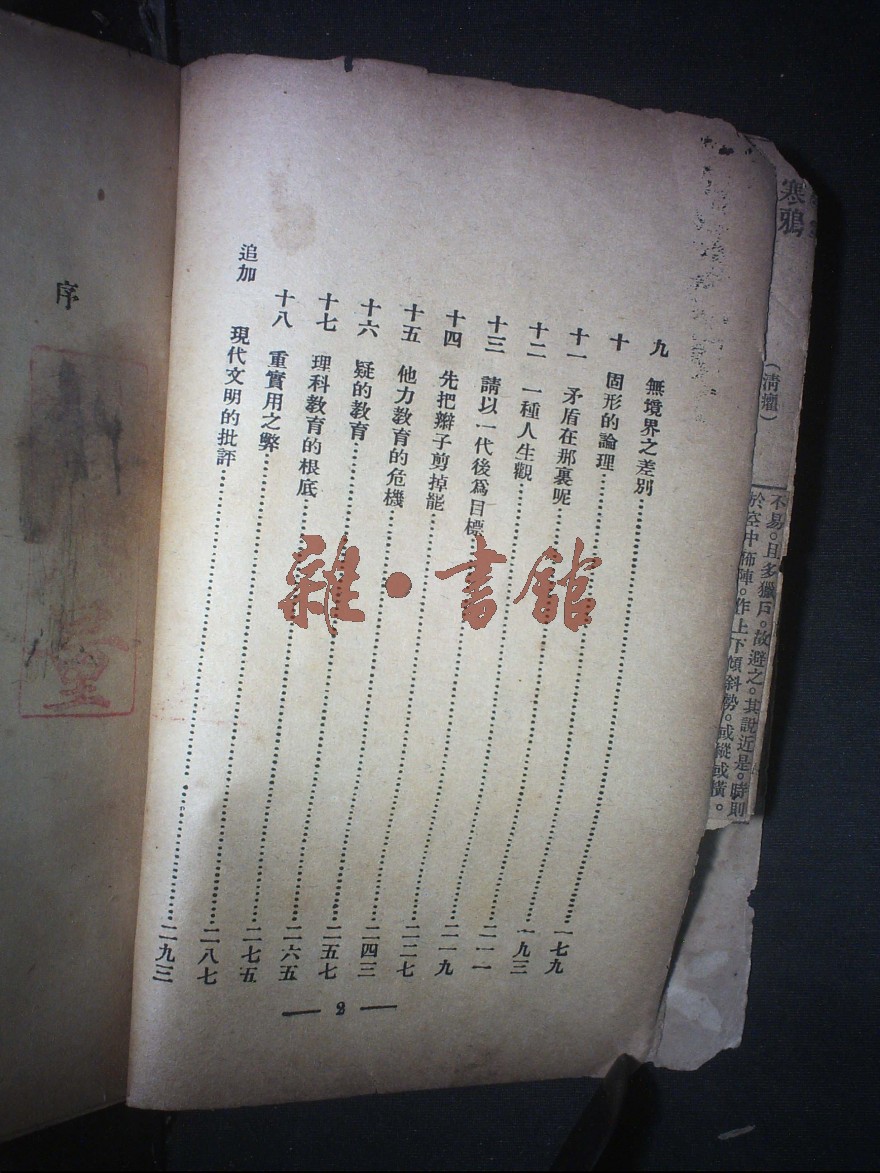 寒鴉
（清癯）
不易。且多獵戶。故避之。其說近是。時則
於空中佈陣。作上下傾斜勢。或縱或橫。
九 無境界之差別……一七九
十 固形的論理……一九三
十一 矛盾在那裏呢……二一一
十二 一種人生觀……二一九
十三 請以一代後爲目標……二二七
十四 先把辮子剪掉能……二四三
十五 他力教育的危機……二五七
十六 疑的教育……二六五
十七 理科教育的根底……二七五
十八 重實用之弊……二八七
追加 現代文明的批評……二九三
— 2 —
序
雜•書館